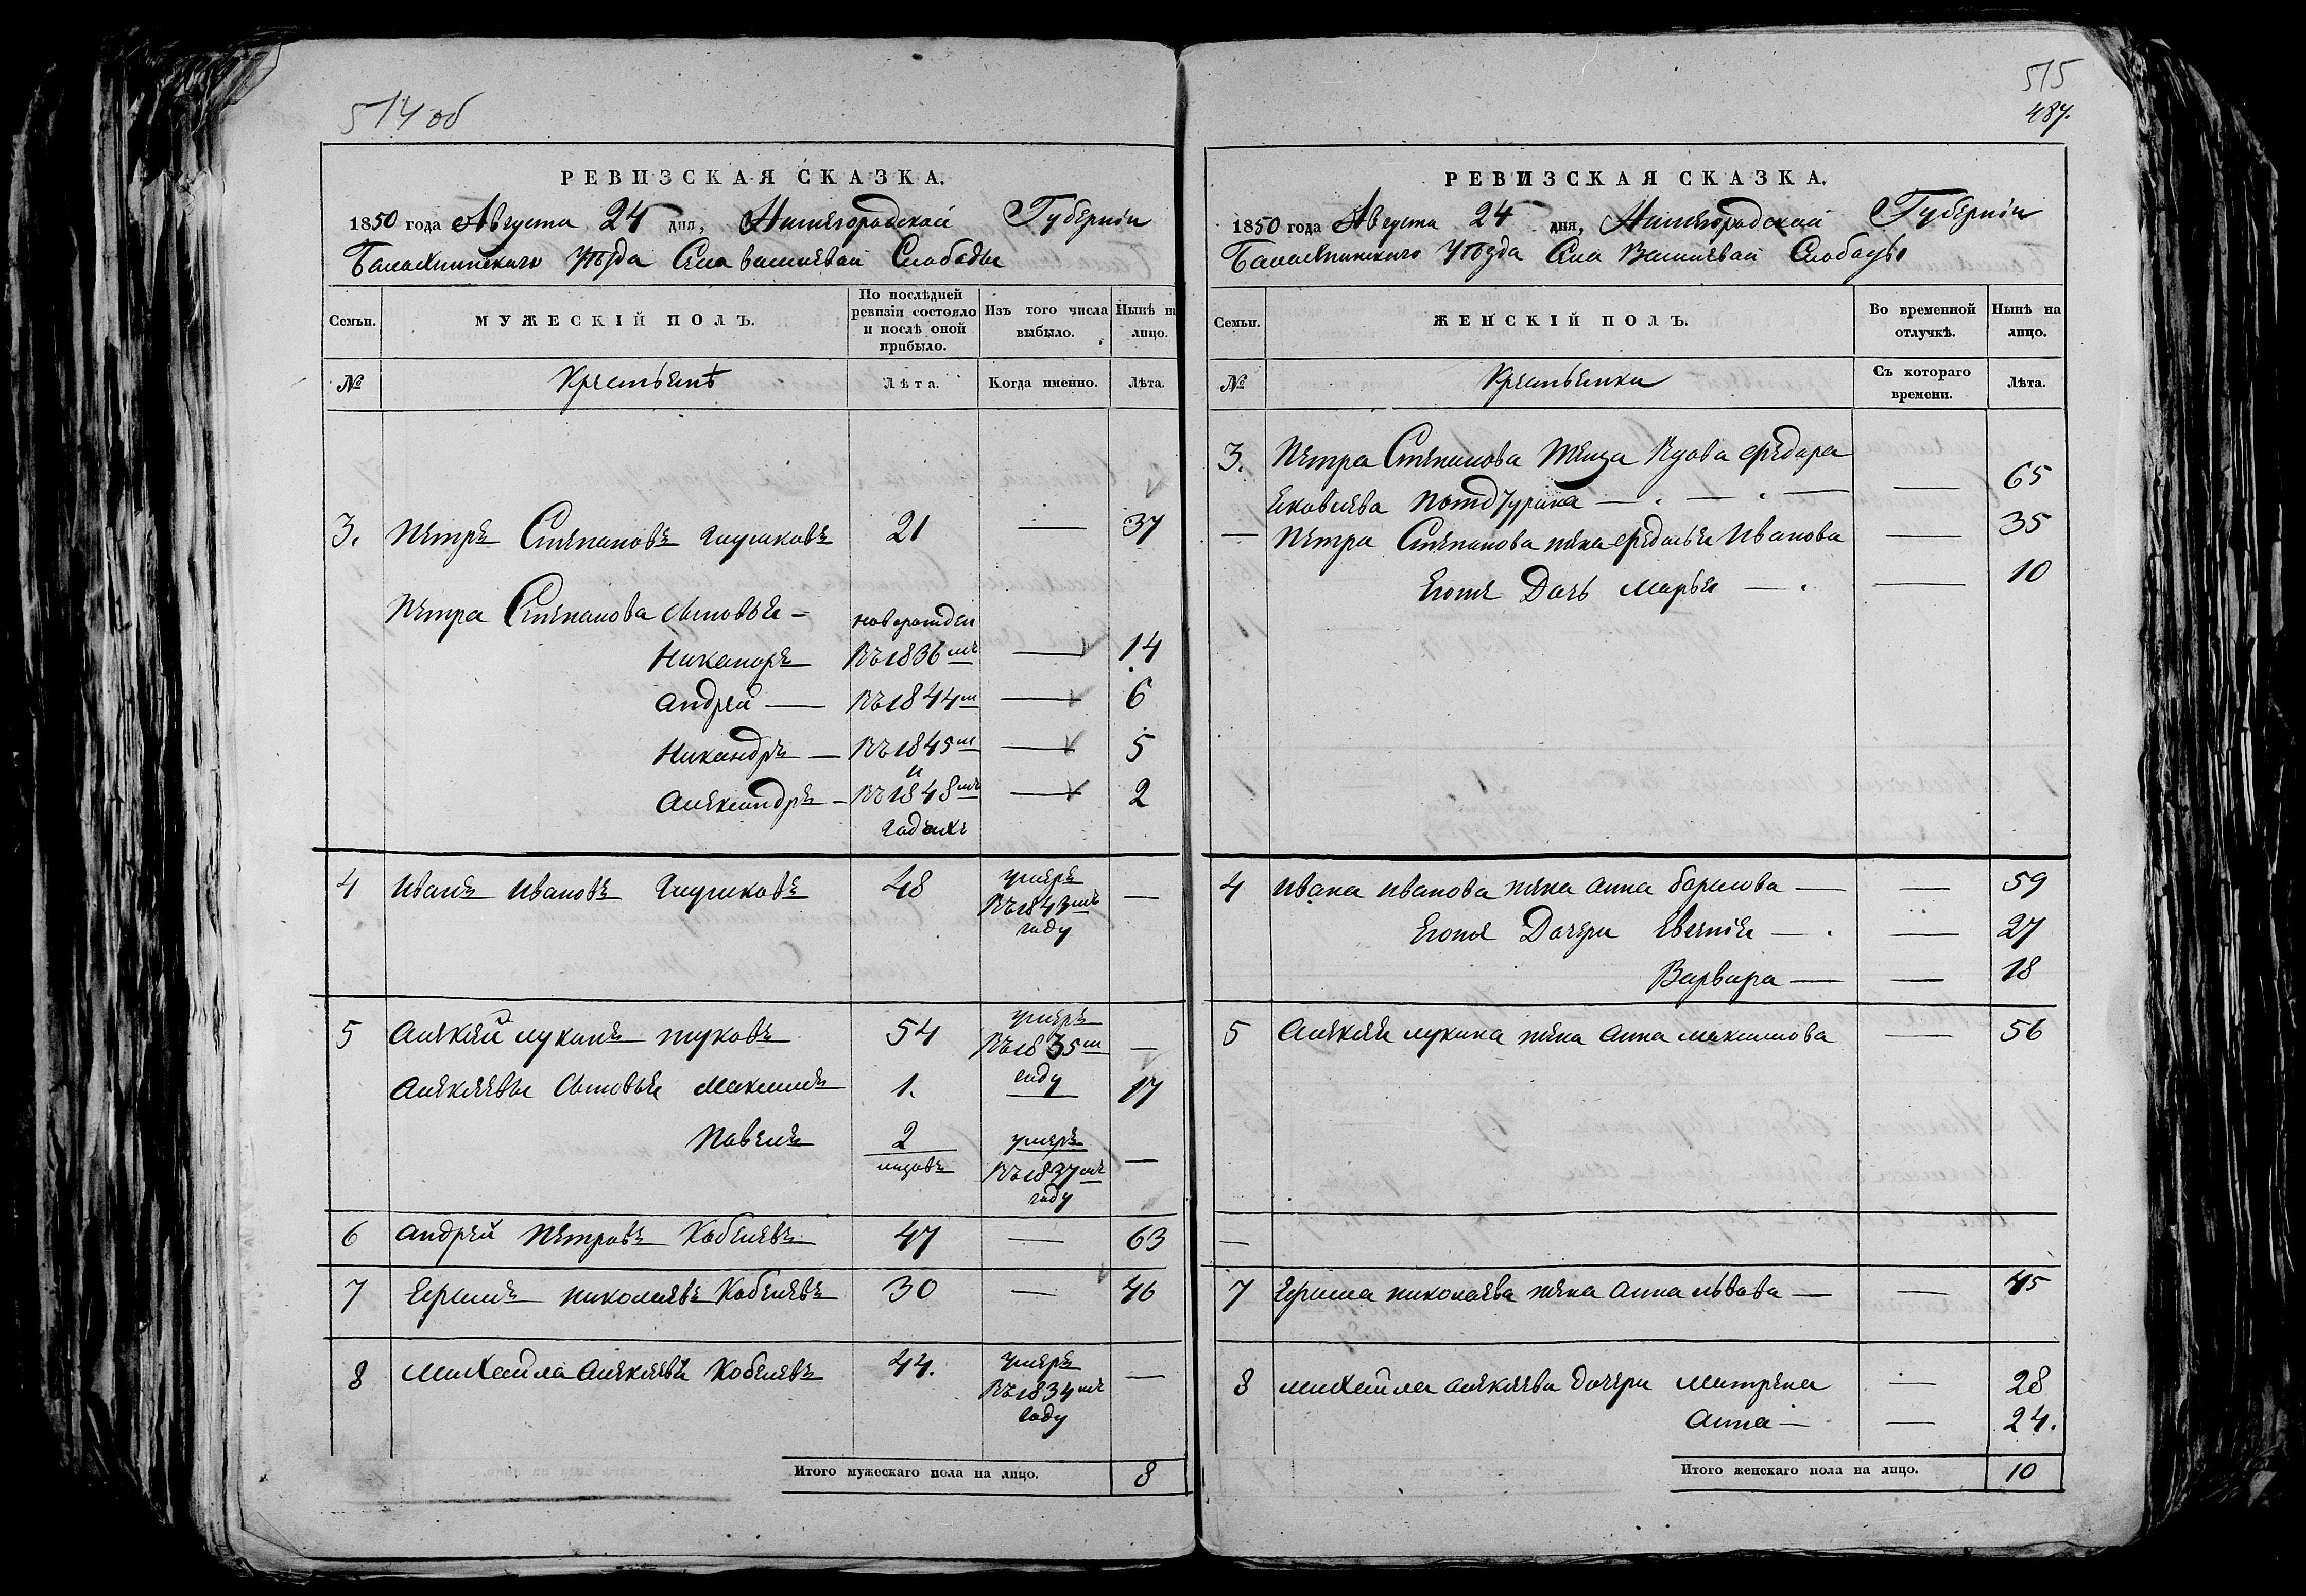 514 об
РЕВИЗСКАЯ СКАЗКА.
1850 года Августа 24 дня, Нижегородской Губернiи
Балахнинскаго Уѣзда Села Василевой Слободы
Семьи.
МУЖЕСКIЙ ПОЛЪ.
По послѣдней ревизiи состояло и послѣ оной прибыло.
Изъ того числа выбыло.
Нынѣ на лицо.
№
Крестьянѣ
Лѣта.
Когда именно.
Лѣта.
3. Петръ Степановъ 21 — 37
Петра Степанова Сыновья – новорожден
Никаноръ Въ 1836мъ — 14
Андрей — Въ 1844м — 6
Никандръ — Въ 1845м — 5
и
Александръ – Въ 1848мъ — 2
годахъ
4 Иванъ Ивановъ 48 умеръ —
Въ 1843мъ
году
5 Алексѣй Лукинъ Жуковъ 54 умеръ —
Въ 1835м
году
Алексѣевы Сыновья Максимъ 1. — 17
Павелъ 2 умеръ —
Въ 1837мъ
году
6 Андрей Петровъ Кобелевъ 47 — 63
7 Ефимъ Николаевъ Кобелевъ 30 — 46
8 Михайла Алексѣевъ Кобелевъ 44. умеръ —
Въ 1834мъ
году
Итого мужескаго пола на лицо. 8
515
487.
РЕВИЗСКАЯ СКАЗКА.
1850 года Августа 24 дня, Нижегородской Губернiи
Балахнинскаго Уѣзда Села Василевой Слободы
Семьи.
ЖЕНСКIЙ ПОЛЪ.
Во временной отлучкѣ.
Нынѣ на лицо.
№
Крестьянки
Съ котораго времени.
Лѣта.
3. Петра Степанова Теща Вдова Федора
Яковлева — 65
— Петра Степанова жена Федосья Иванова — 35
Егоже Дочь Марья — — 10
4 Ивана Иванова жена Анна Борисова — — 59
Егоже Дочери — — 27
Варвара — — 18
5 Алексѣя Лукина жена Анна Максимова — 56
—
7 Ефима Николаева жена Анна Львова — — 45
8 Михайла Алексѣева дочери Матрена — 28
Анна — — 24.
Итого женскаго пола на лицо. 10